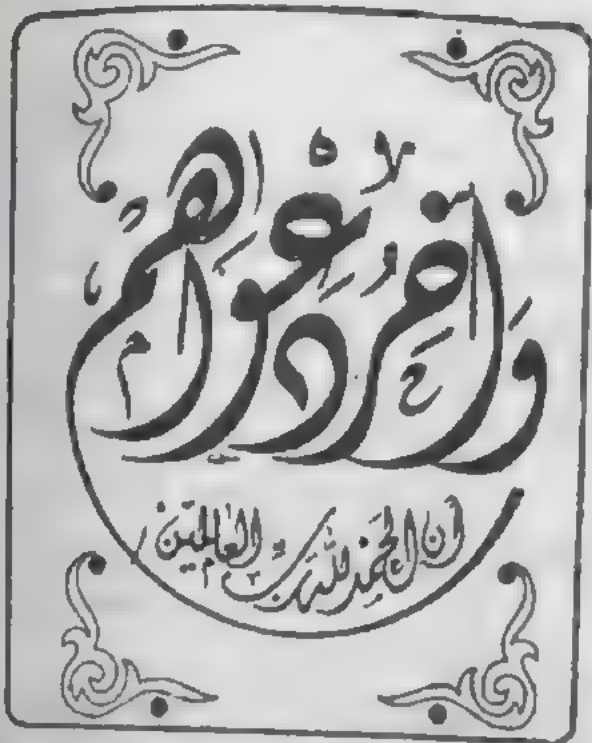 وَآخِرُ دَعْوَاهُمْ
أَنِ الْحَمْدُ لِلَّهِ رَبِّ الْعَالَمِينَ